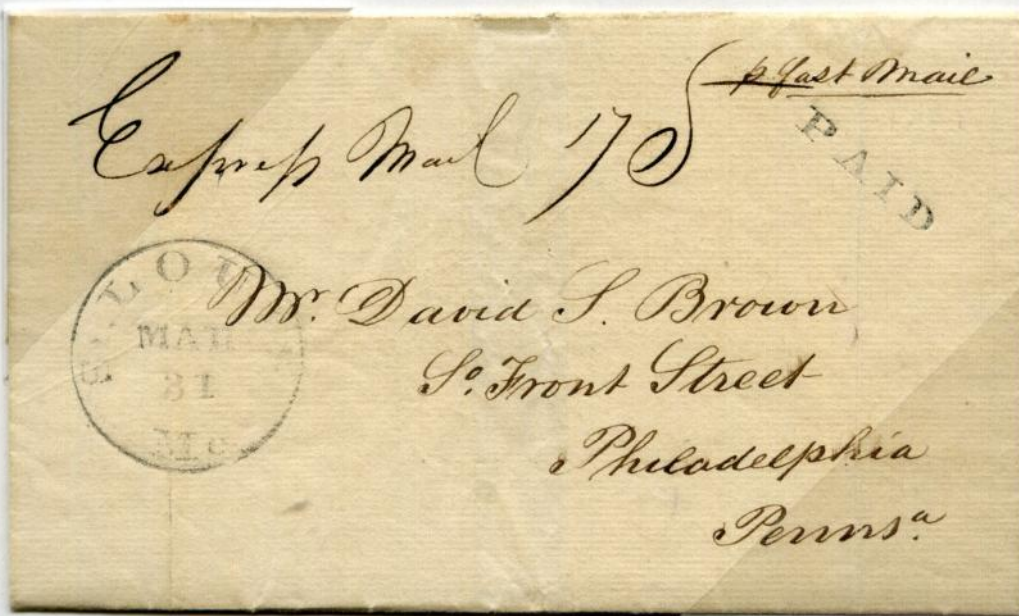 p fast Mail
Express Mail 175
PAID
ST. LOU
MAR
31
Mo
Mr. David S. Brown
So. Front Street
Philadelphia
Pennsa.